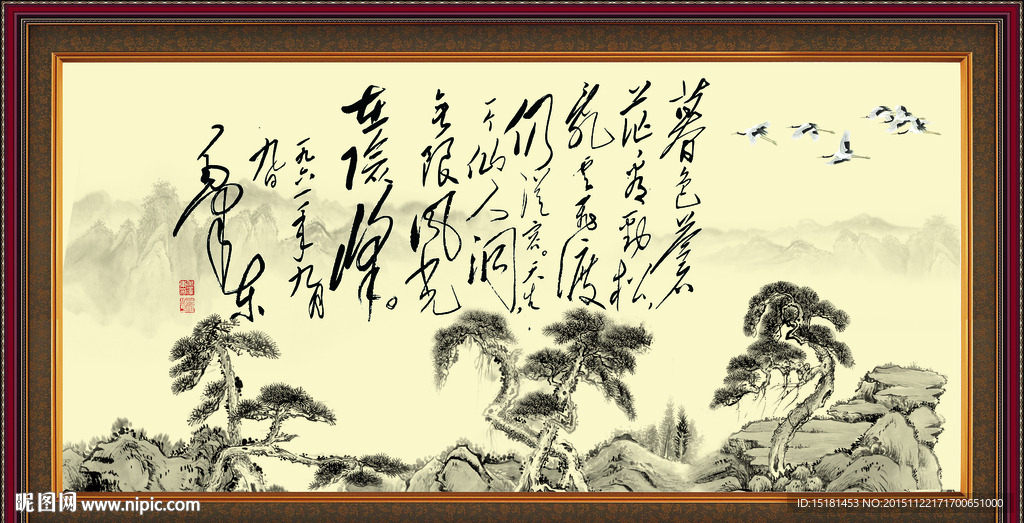 暮色苍
茫看劲松，
乱云飞渡
仍從容。天生
一个仙人洞，
无限风光
在险峰。
一九六一年九月
九日
毛泽东
昵图网 www.nipic.com
ID:15181453 NO:20151122171700651000